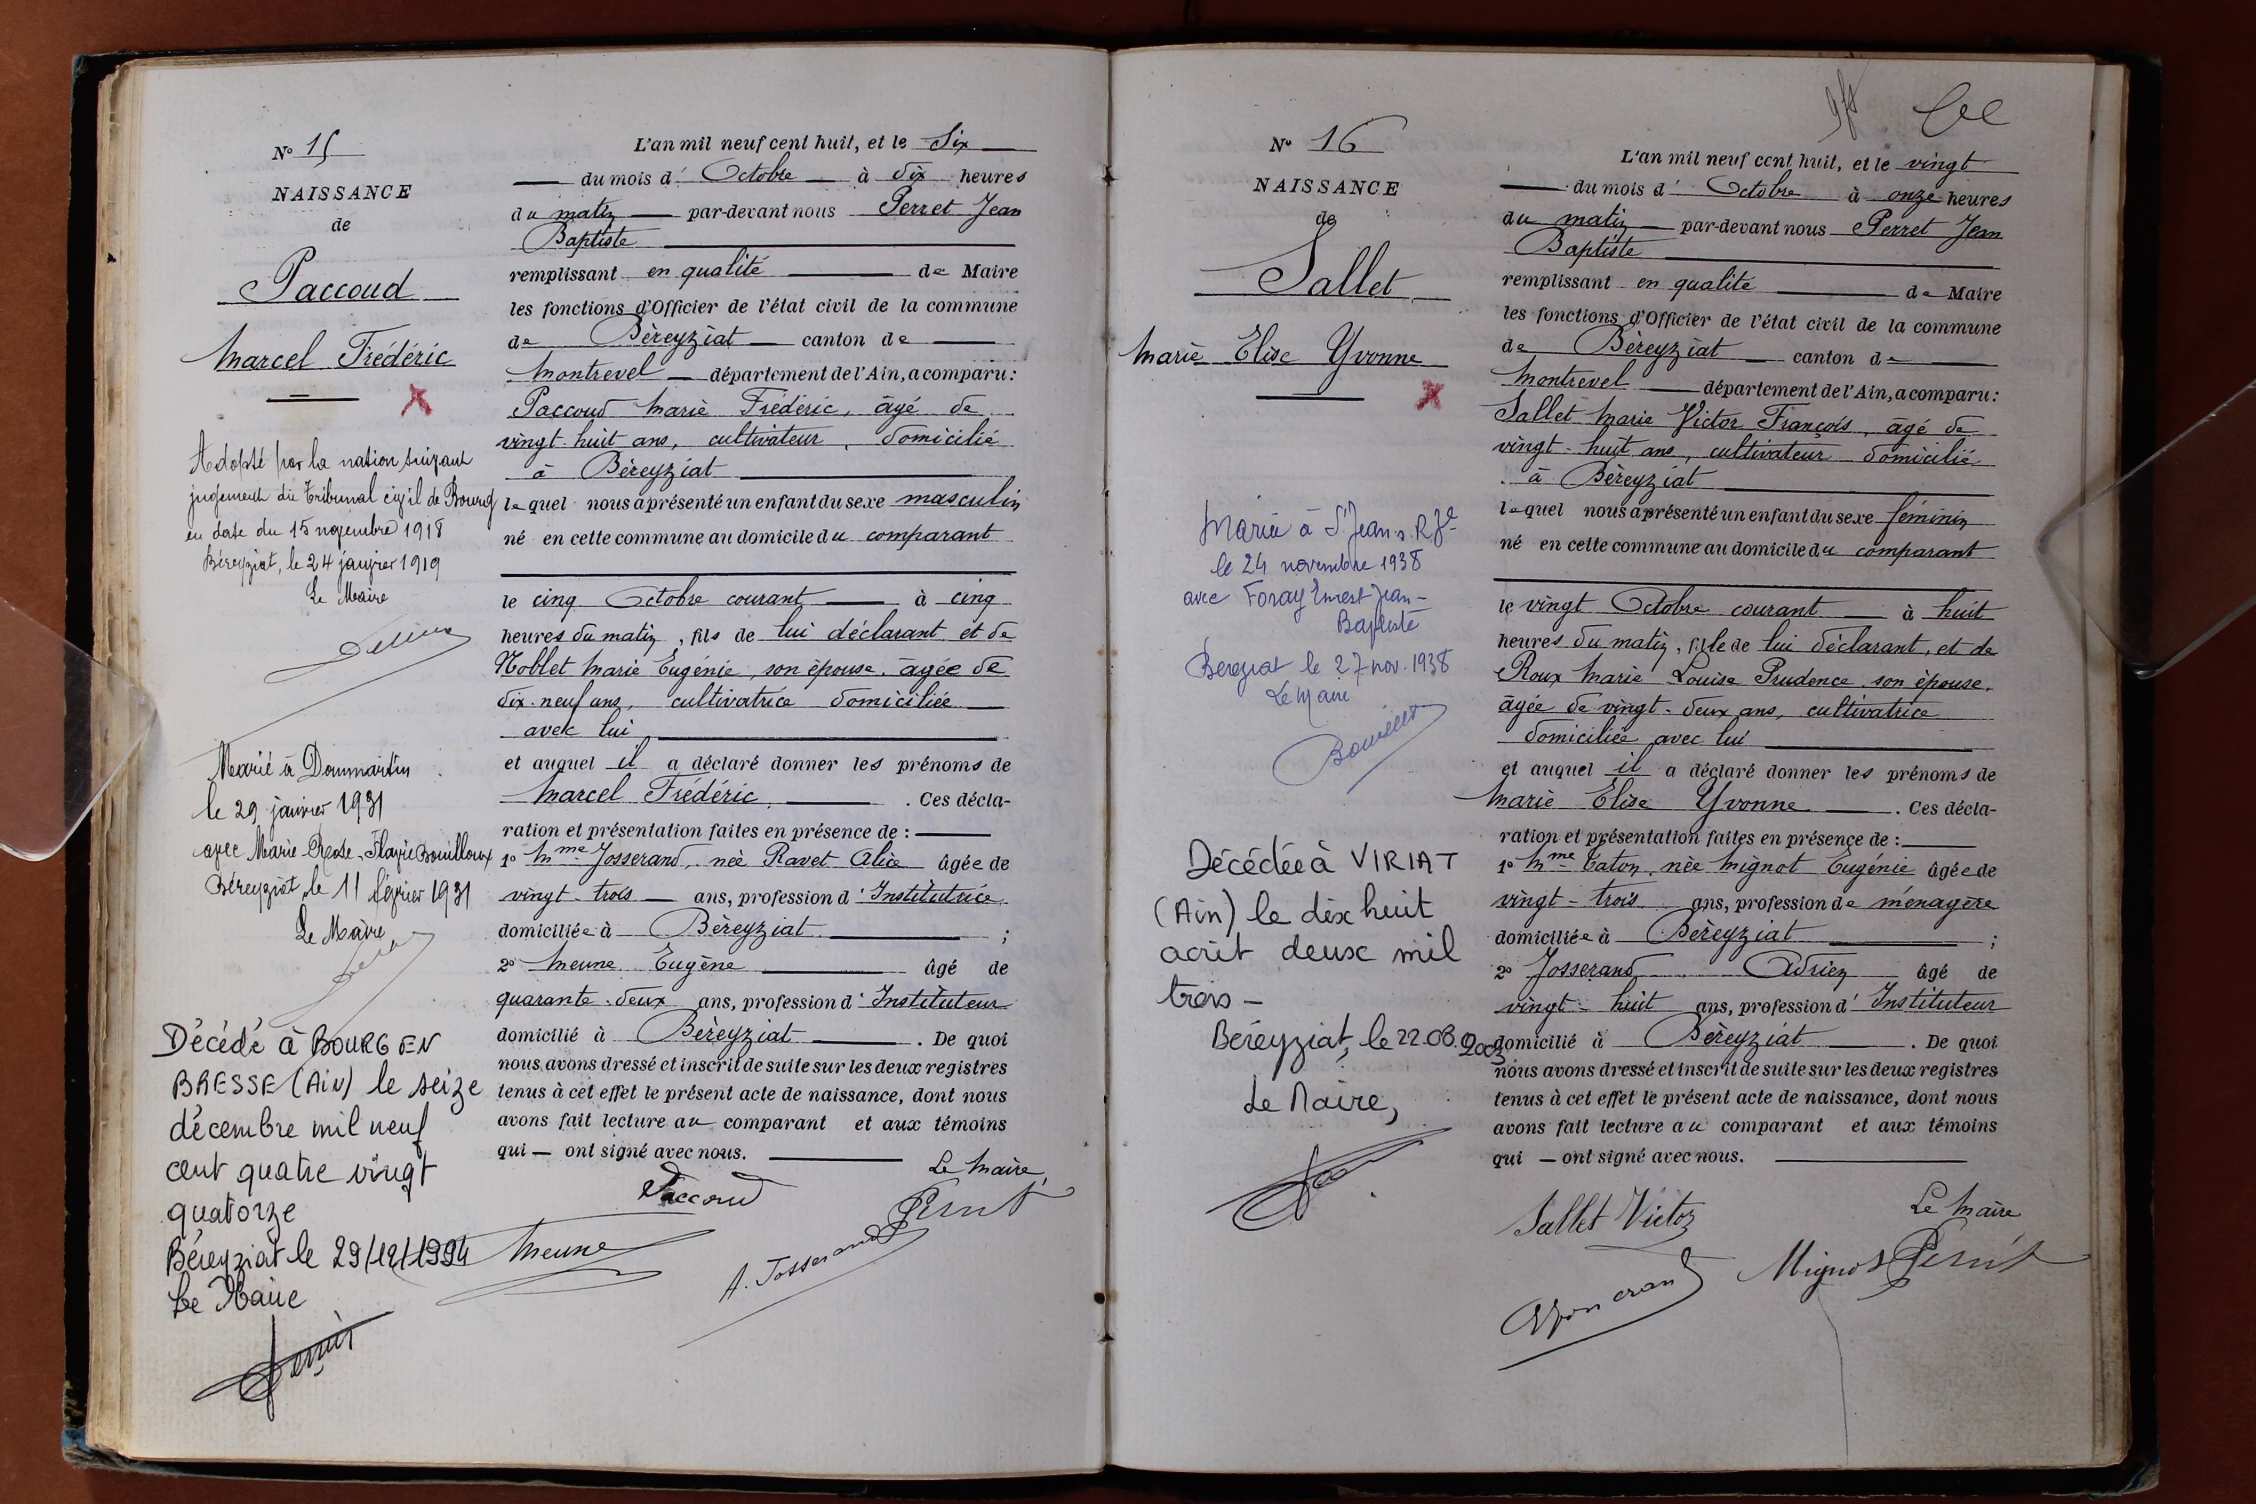 N° 15
NAISSANCE
de
Paccoud
Marcel Frédéric
Adopté par la nation suivant
jugement du Tribunal civil de Bourg
en date du 15 novembre 1918
Béreyziat, le 24 janvier 1919
Le Maire
Marié à Dommartin
le 29 janvier 1931
avec Marie-Rose-Flavie Bouilloux
Béreyziat, le 11 février 1931
Le Maire
Décédé à BOURG EN
BRESSE (AiN) le seize
décembre mil neuf
cent quatre vingt
quatorze
Béreyziat le 29/12/1994
Le Maire
L'an mil neuf cent huit, et le Six
du mois d' Octobre à dix heures
du matin par-devant nous Perret Jean
Baptiste
remplissant en qualité de Maire
les fonctions d'Officier de l'état civil de la commune
de Béreyziat canton de
Montrevel département de l'Ain, a comparu :
Paccoud Marie Frédéric, âgé de
vingt-huit ans, cultivateur, domicilié
à Béreyziat
lequel nous a présenté un enfant du sexe masculin
né en cette commune au domicile du comparant
le cinq Octobre courant à cinq
heures du matin, fils de lui déclarant et de
Noblet Marie Eugénie, son épouse, âgée de
dix-neuf ans, cultivatrice domiciliée
avec lui
et auquel il a déclaré donner les prénoms de
Marcel Frédéric. Ces décla-
ration et présentation faites en présence de :
1° Mme Josserand, née Ravet Alice âgée de
vingt-trois ans, profession d'Institutrice
domiciliée à Béreyziat ;
2° Meune Eugène âgé de
quarante-deux ans, profession d'Instituteur
domicilié à Béreyziat. De quoi
nous avons dressé et inscrit de suite sur les deux registres
tenus à cet effet le présent acte de naissance, dont nous
avons fait lecture au comparant et aux témoins
qui ont signé avec nous.
Le Maire,
Paccoud
Perret
Meune
A. Josserand
N° 16
NAISSANCE
de
Sallet
Marie Elise Yvonne
Mariée à St Jean s. Rze
le 24 novembre 1938
avec Foray Ernest Jean-
Baptiste
Béreyziat le 27 nov. 1938
Le Maire
Décédée à VIRIAT
(Ain) le dix huit
août deux mil
trois -
Béréyziat, le 22.08.2003
Le Maire,
L'an mil neuf cent huit, et le vingt
du mois d' Octobre à onze heures
du matin par-devant nous Perret Jean
Baptiste
remplissant en qualité de Maire
les fonctions d'Officier de l'état civil de la commune
de Béreyziat canton de
Montrevel département de l'Ain, a comparu :
Sallet Marie Victor François, âgé de
vingt-huit ans, cultivateur domicilié
à Béreyziat
lequel nous a présenté un enfant du sexe féminin
né en cette commune au domicile du comparant
le vingt Octobre courant à huit
heures du matin, fille de lui déclarant, et de
Roux Marie Louise Prudence, son épouse,
âgée de vingt-deux ans, cultivatrice
domiciliée avec lui
et auquel il a déclaré donner les prénoms de
Marie Elise Yvonne. Ces décla-
ration et présentation faites en présence de :
1° Mme Caton, née Mignot Eugénie âgée de
vingt-trois ans, profession de ménagère
domiciliée à Béreyziat ;
2° Josserand Adrien âgé de
vingt-huit ans, profession d'Instituteur
domicilié à Béreyziat. De quoi
nous avons dressé et inscrit de suite sur les deux registres
tenus à cet effet le présent acte de naissance, dont nous
avons fait lecture au comparant et aux témoins
qui ont signé avec nous.
Le Maire
Sallet Victor
Mignot
Perret